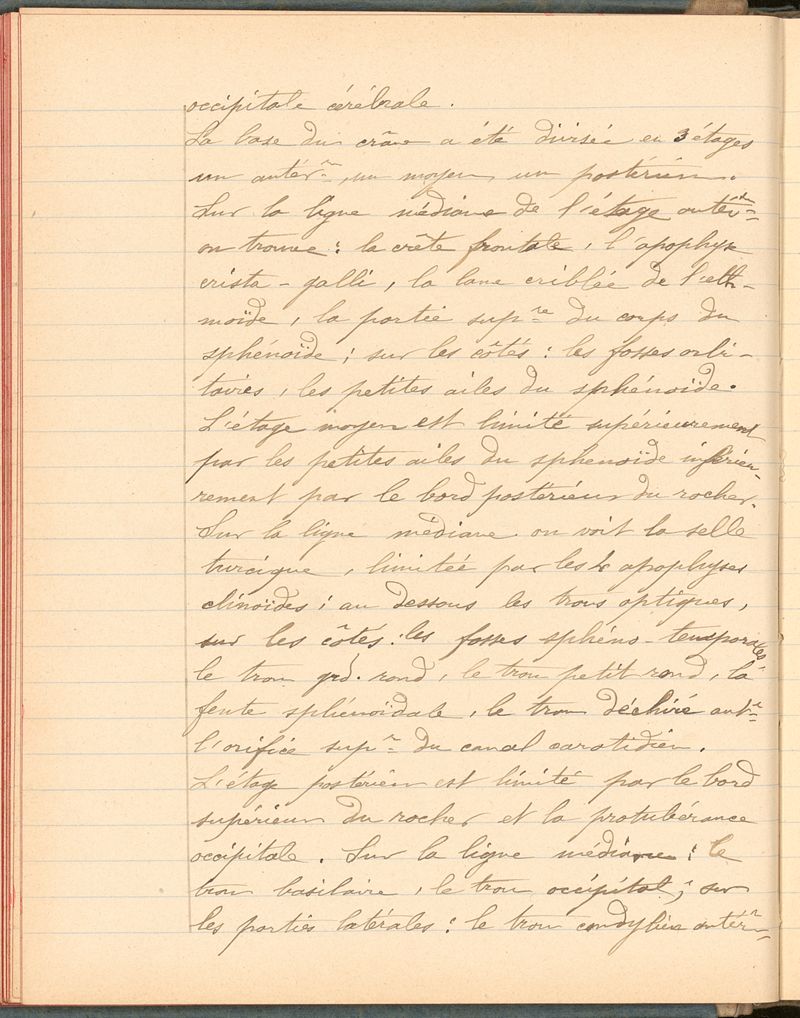 occipitale cérébrale.
La base du crâne a été divisée en 3 étages
un antér^r, un moyen, un postérieur.
Sur la ligne médiane de l'étage antér^r
on trouve : la crête frontale, l'apophyse
crista-galli, la lame criblée de l'eth-
moïde, la partie sup^re du corps du
sphénoïde ; sur les côtés : les fosses orbi-
taires, les petites ailes du sphénoïde.
L'étage moyen est limité supérieurement
par les petites ailes du sphenoïde inférieu-
rement par le bord postérieur du rocher.
Sur la ligne médiane on voit la selle
turcique, limitée par les 4 apophyses
clinoïdes ; au dessous les trous optiques,
sur les côtés : les fosses sphéno-temporales
le trou grd. rond, le trou petit rond, la
fente sphénoïdale, le trou déchiré ant^r
l'orifice sup^r du canal carotidien.
L'étage postérieur est limité par le bord
supérieur du rocher et la protubérance
occipitale. Sur la ligne médiane : le
trou basilaire, le trou occipital ; sur
les parties latérales : le trou condylien antér^r